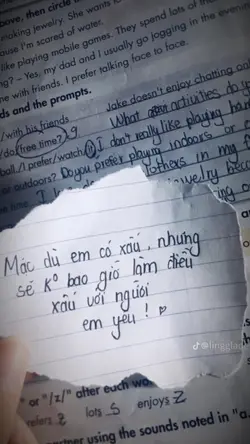 making jewelry. She wants to
cause I'm scared of water.
like playing mobile games. They spend lots of
g? – Yes, my dad and I usually go jogging in the even
ne with friends. I prefer talking face to face.
ds and the prompts.
/with his friends
Jake doesn't enjoy chatting
/do/free time? 9
What activities do
ball./I prefer/watch
I don't really like playing
or outdoors? Do you prefer playing indoors or
in my
Mặc dù em có xấu, nhưng
sẽ k° bao giờ làm điều
xấu với người
em yêu!
or "/ɪz/" after each
refers
lots S
enjoys Z
using the sounds noted in "a